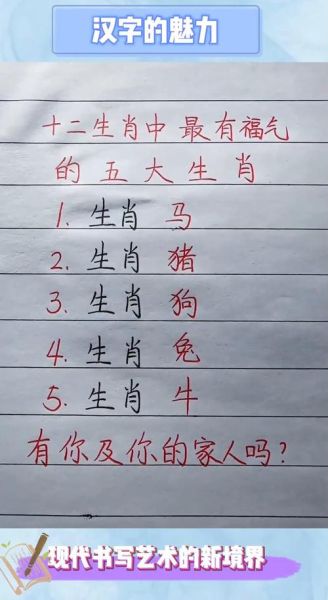 汉字的魅力
十二生肖中最有福气
的五大生肖
1. 生肖 马
2. 生肖 猪
3. 生肖 狗
4. 生肖 兔
5. 生肖 牛
有你及你的家人吗？
现代书写艺术的新境界